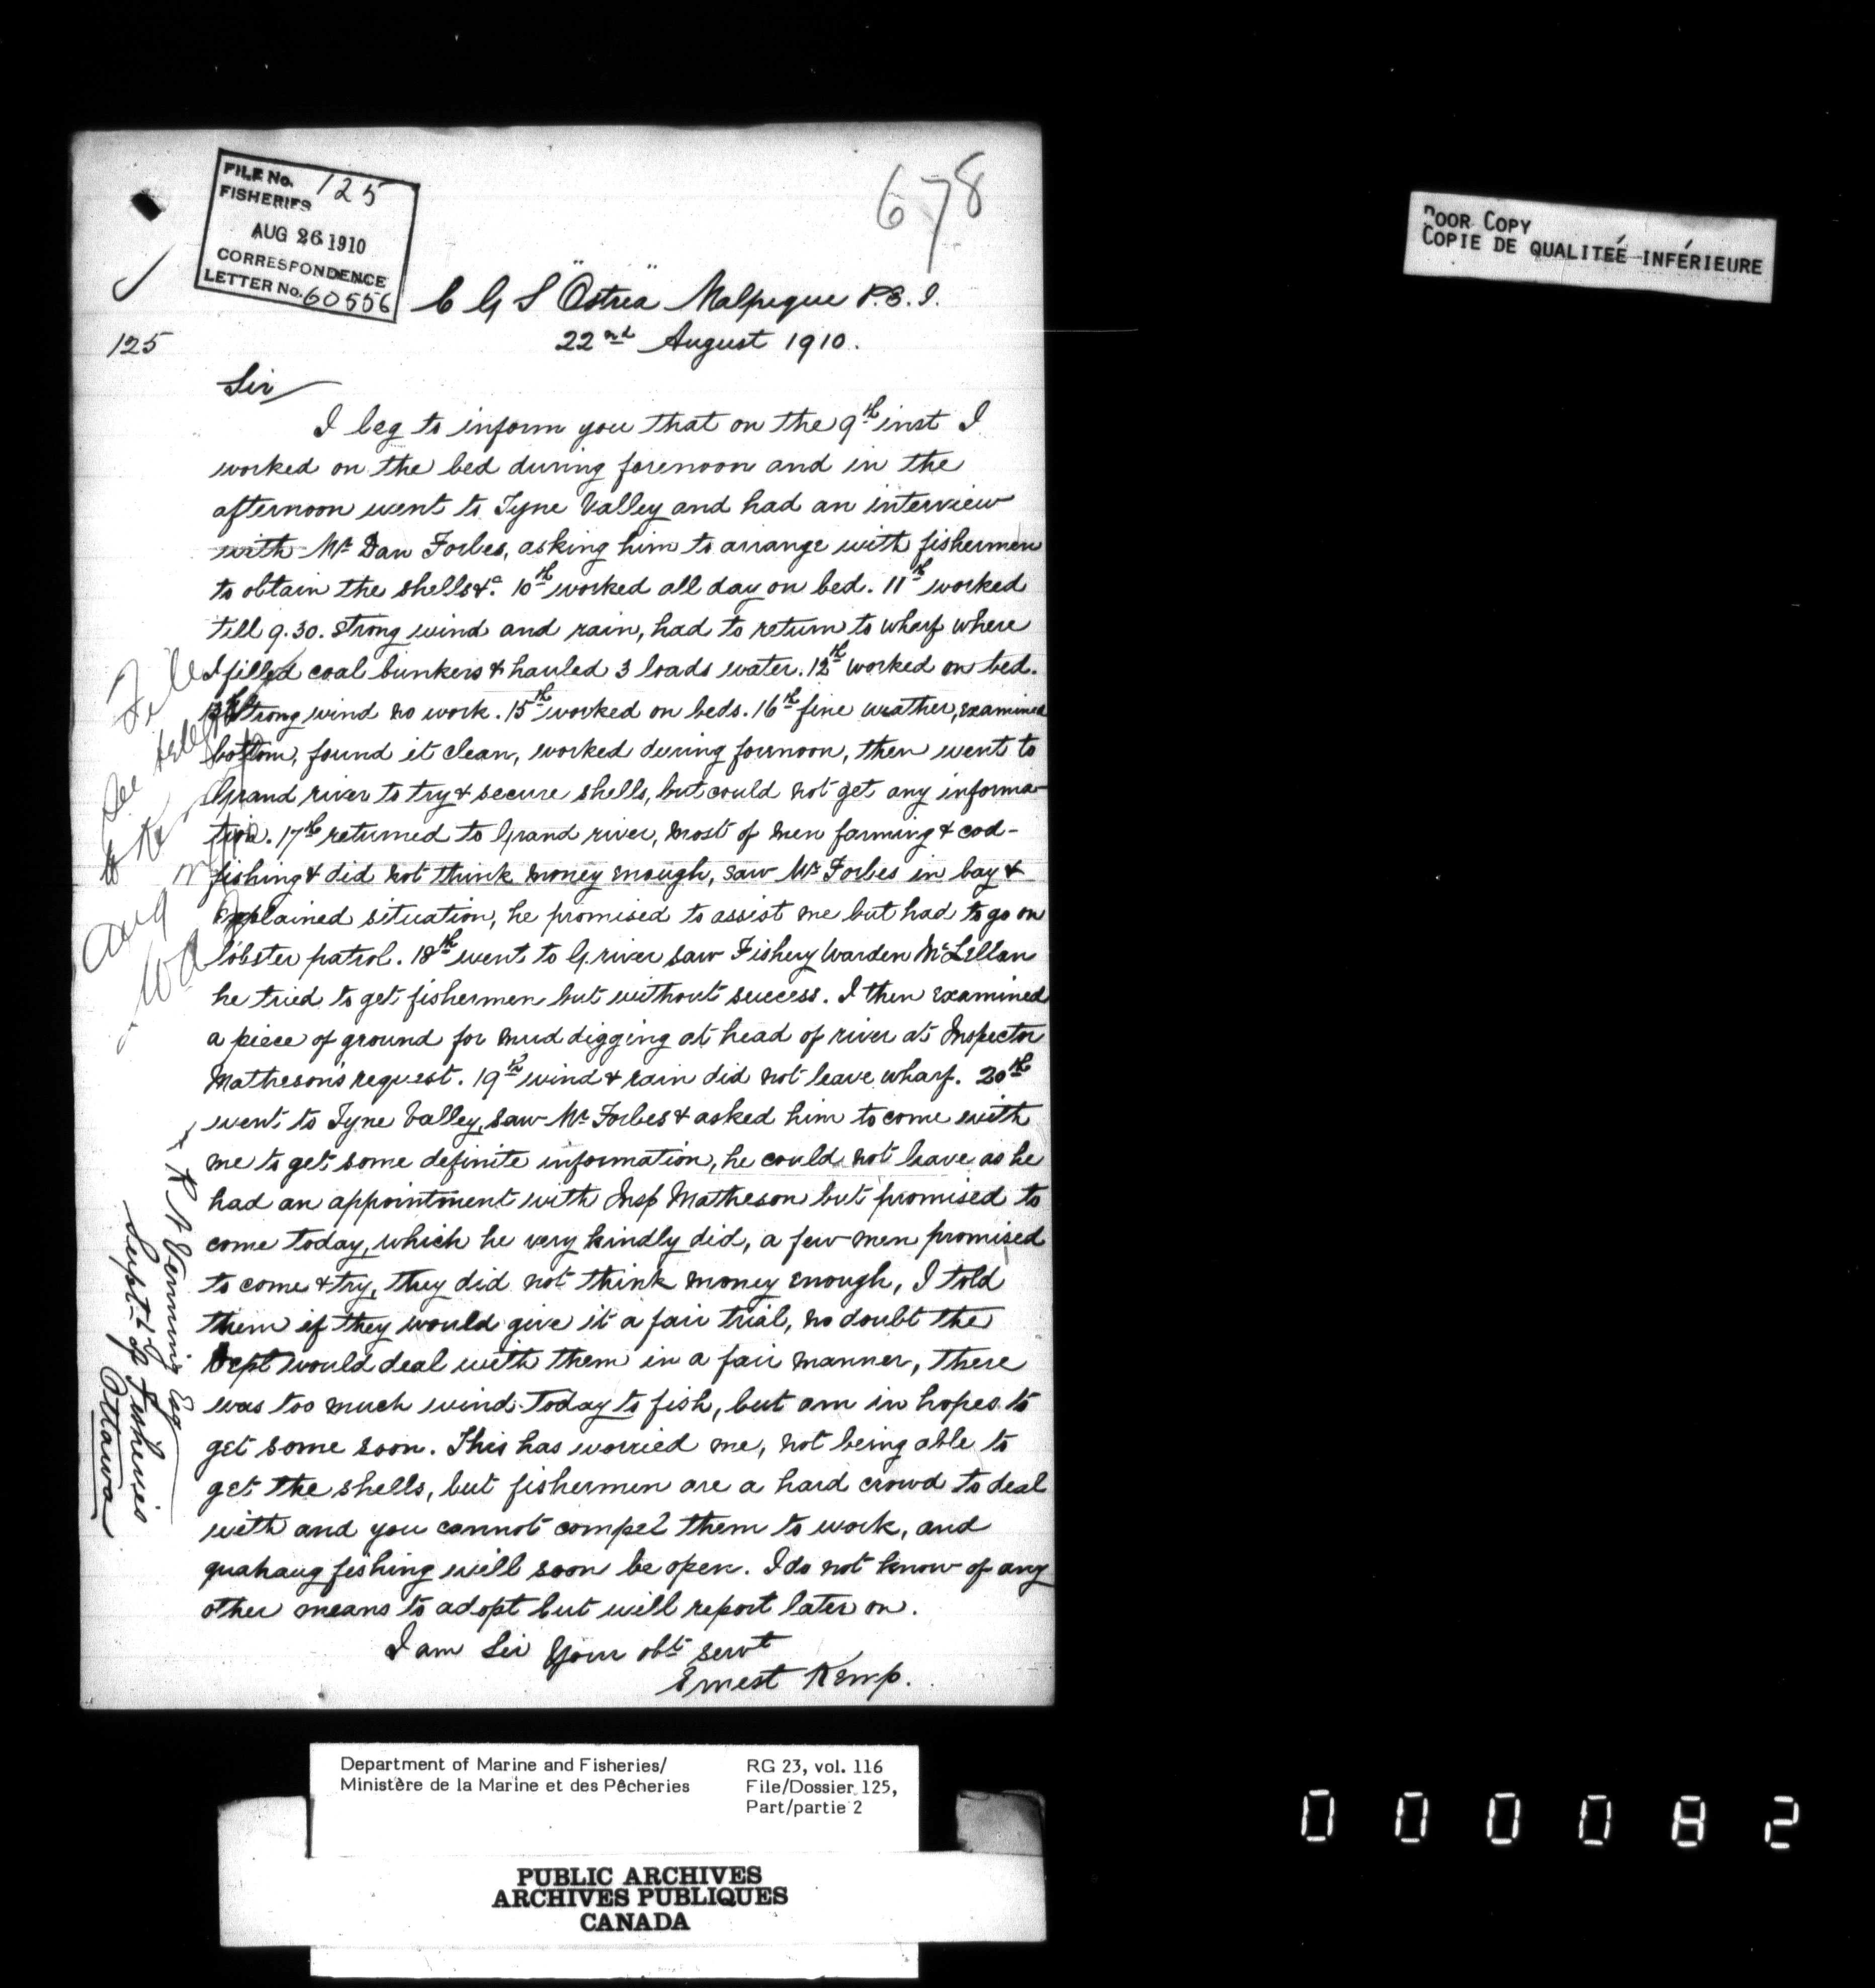 FILE No. 125
FISHERIES
AUG 26 1910
CORRESPONDENCE
LETTER No. 60556
678
125
C G S "Ostrea" Malpeque P.E.I.
22nd August 1910.
Sir
I beg to inform you that on the 9th inst I
worked on the bed during forenoon and in the
afternoon went to Tyne Valley and had an interview
with Mr Dan Forbes, asking him to arrange with fishermen
to obtain the shells &c. 10th worked all day on bed. 11th worked
till 9.30. strong wind and rain, had to return to wharf where
I filled coal bunkers & hauled 3 loads water. 12th worked on bed.
13th strong wind no work. 15th worked on beds. 16th fine weather, examined
bottom, found it clean, worked during forenoon, then went to
Grand river to try & secure shells, but could not get any informa-
tion. 17th returned to Grand river, most of men farming & cod-
fishing & did not think money enough, saw Mr Forbes in bay &
explained situation, he promised to assist me but had to go on
lobster patrol. 18th went to G. river saw Fishery Warden McLellan
he tried to get fishermen but without success. I then examined
a piece of ground for mud digging at head of river at Inspector
Matheson's request. 19th wind & rain did not leave wharf. 20th
went to Tyne Valley, saw Mr Forbes & asked him to come with
me to get some definite information, he could not leave as he
had an appointment with Insp Matheson but promised to
come today, which he very kindly did, a few men promised
to come & try, they did not think money enough, I told
them if they would give it a fair trial, no doubt the
Dept would deal with them in a fair manner, there
was too much wind today to fish, but am in hopes to
get some soon. This has worried me, not being able to
get the shells, but fishermen are a hard crowd to deal
with and you cannot compel them to work, and
quahaug fishing will soon be open. I do not know of any
other means to adopt but will report later on.
I am Sir Your obt servt
Ernest Kemp.
File
See
Aug
R N Venning Esq
Supt of Fisheries
Ottawa
POOR COPY
COPIE DE QUALITEÉ INFÉRIEURE
Department of Marine and Fisheries/
Ministère de la Marine et des Pêcheries
RG 23, vol. 116
File/Dossier 125,
Part/partie 2
PUBLIC ARCHIVES
ARCHIVES PUBLIQUES
CANADA
000082